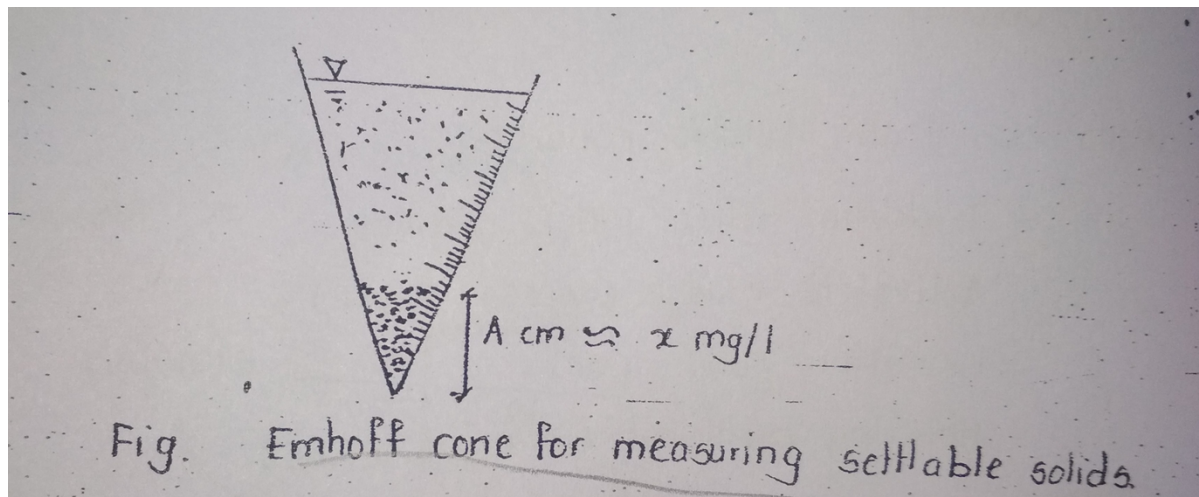 A cm ≈ x mg/l
Fig. Emhoff cone for measuring settlable solids.